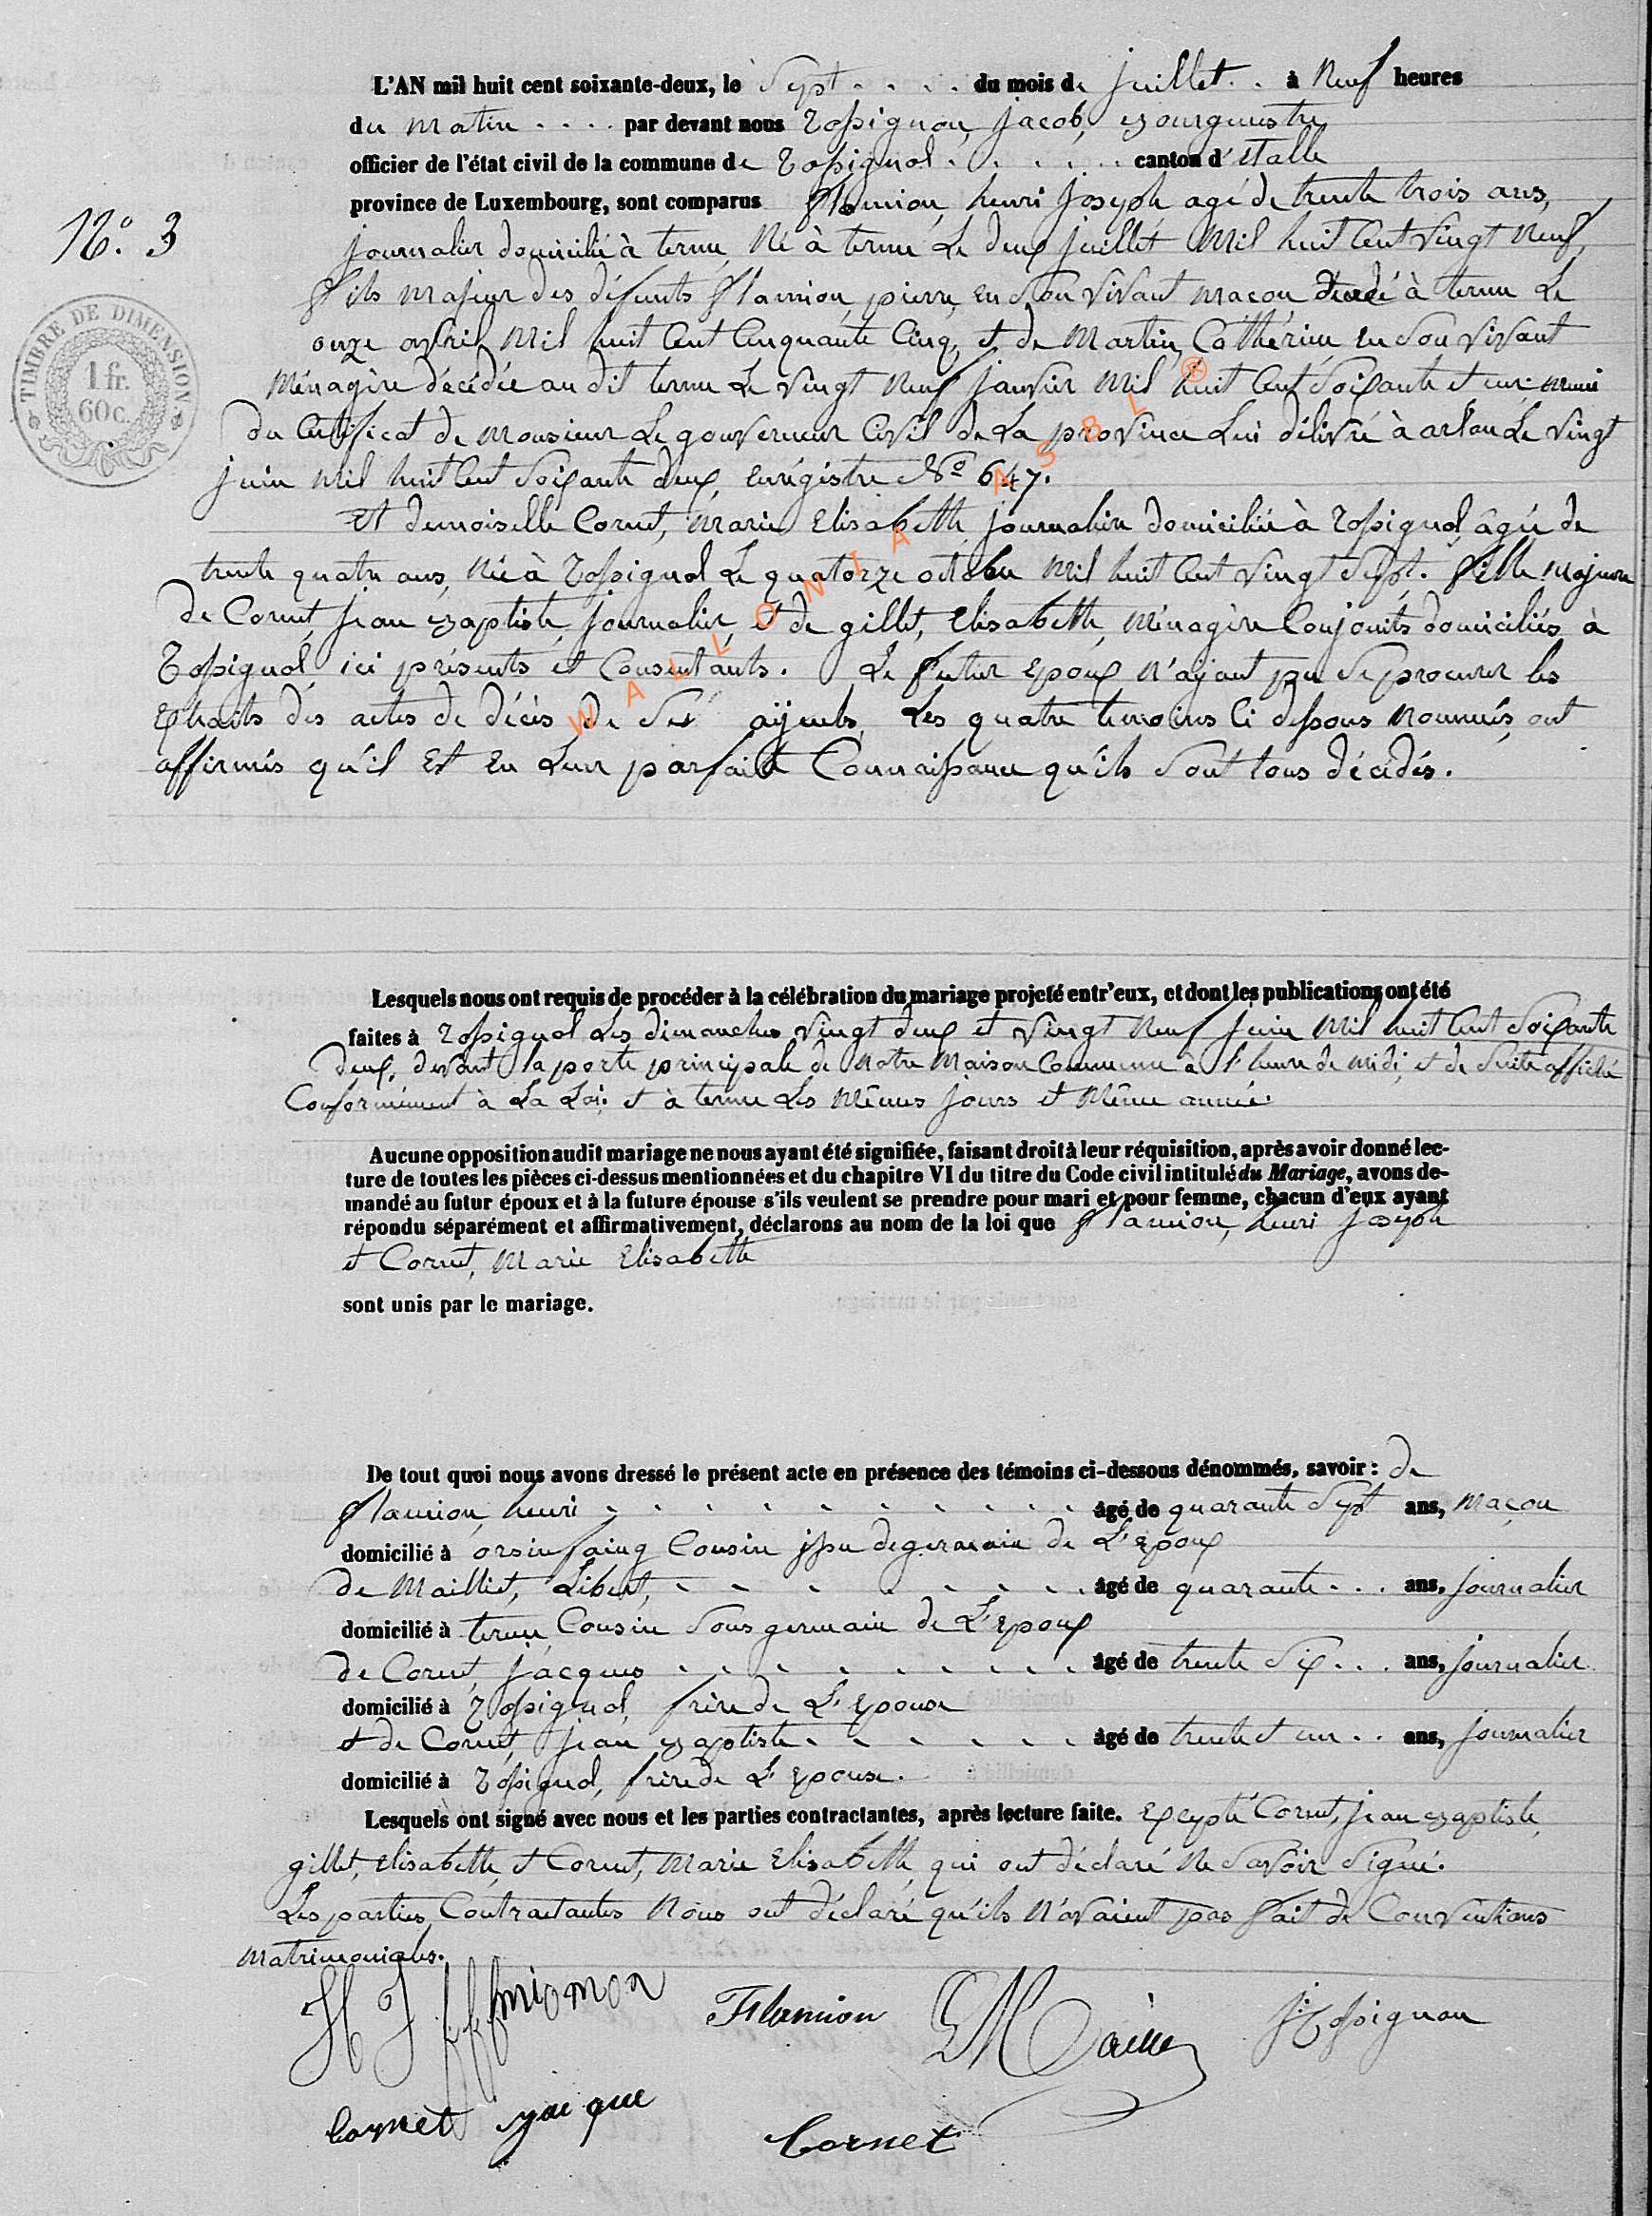 L'AN mil huit cent soixante-deux, le Sept . . . . du mois de juillet . . à Neuf heures
du matin . . . . par devant nous Rossignon, Jacob, Bourgmestre
officier de l'état civil de la commune de Rossignol . . . . . canton d'Etalle
province de Luxembourg, sont comparus Flamion, henri Joseph agé de trente trois ans,
N.º 3
journalier domicilié à termes, Né à termes Le deux juillet Mil huit Cent Vingt Neuf,
TIMBRE DE DIMENSION
1 fr.
60 c.
fils majeur des défunts Flamion, pierre, en Son Vivant maçon décédé à termes Le
onze avril Mil huit Cent Cinquante Cinq, et de Martin, Cathérine en Son Vivant
Ménagère décédée au dit termes Le Vingt Neuf janvier Mil huit Cent Soixante et un; muni
du Certificat de Monsieur Le gouverneur Civil de La province Lui délivré à arlon Le Vingt
juin Mil huit Cent Soixante deux, enrégistré Nº 647.
Et demoiselle Cornet, Marie Elisabeth, journalière domiciliée à Rossignol, âgée de
trente quatre ans, Née à Rossignol Le quatorze octobre Mil huit Cent Vingt Sept. fille Majeure
de Cornet, jean Baptiste, journalier, et de gillet, Elisabeth, Ménagère Conjoints domiciliés à
Rossignol, ici présents et Consentants. Le futur Epoux N'ajant pu Se procurer les
Extraits des actes de décès de Ses aÿeuls, Les quatre temoins Ci dessous Nommés, ont
affirmés qu'il Est En Leur parfaite Connaissance qu'ils Sont tous décédés.
WALLONIA ASBL ®
Lesquels nous ont requis de procéder à la célébration du mariage projeté entr'eux, et dont les publications ont été
faites à Rossignol Les dimanches Vingt deux et Vingt Neuf juin Mil huit Cent Soixante
deux, devant la porte principale de Notre Maison Commune à l'heure de midi, et de Suite affiché
Conformément à La Loi; et à termes Les Mêmes jours et Même année.
Aucune opposition audit mariage ne nous ayant été signifiée, faisant droit à leur réquisition, après avoir donné lec-
ture de toutes les pièces ci-dessus mentionnées et du chapitre VI du titre du Code civil intitulé du Mariage, avons de-
mandé au futur époux et à la future épouse s'ils veulent se prendre pour mari et pour femme, chacun d'eux ayant
répondu séparément et affirmativement, déclarons au nom de la loi que Flamion, henri Joseph
et Cornet, Marie Elisabeth
sont unis par le mariage.
De tout quoi nous avons dressé le présent acte en présence des témoins ci-dessous dénommés, savoir : de
Flamion, henri . . . . . . . . . . âgé de quarante Sept ans, Maçon
domicilié à orsinfaing Cousin issu de germain de L'Epoux
de Maillet, Libert, . . . . . . . . âgé de quarante . . . ans, journalier
domicilié à termes, Cousin Sous germain de L'Epoux
de Cornet, Jacques . . . . . . . . âgé de trente Six . . . ans, journalier
domicilié à Rossignol, frère de L'Epouse
et de Cornet, jean Baptiste . . . . . . âgé de trente et un . . ans, journalier
domicilié à Rossignol, frère de L'Epouse.
Lesquels ont signé avec nous et les parties contractantes, après lecture faite. Excepté Cornet, jean Baptiste,
gillet, Elisabeth, et Cornet, Marie Elisabeth, qui ont déclaré Ne Savoir Signé.
Les parties Contractantes Nous ont déclaré qu'ils N'avaient pas fait de Conventions
Matrimoniales.
H J Flamion J. Rossignon
Cornet Cornet